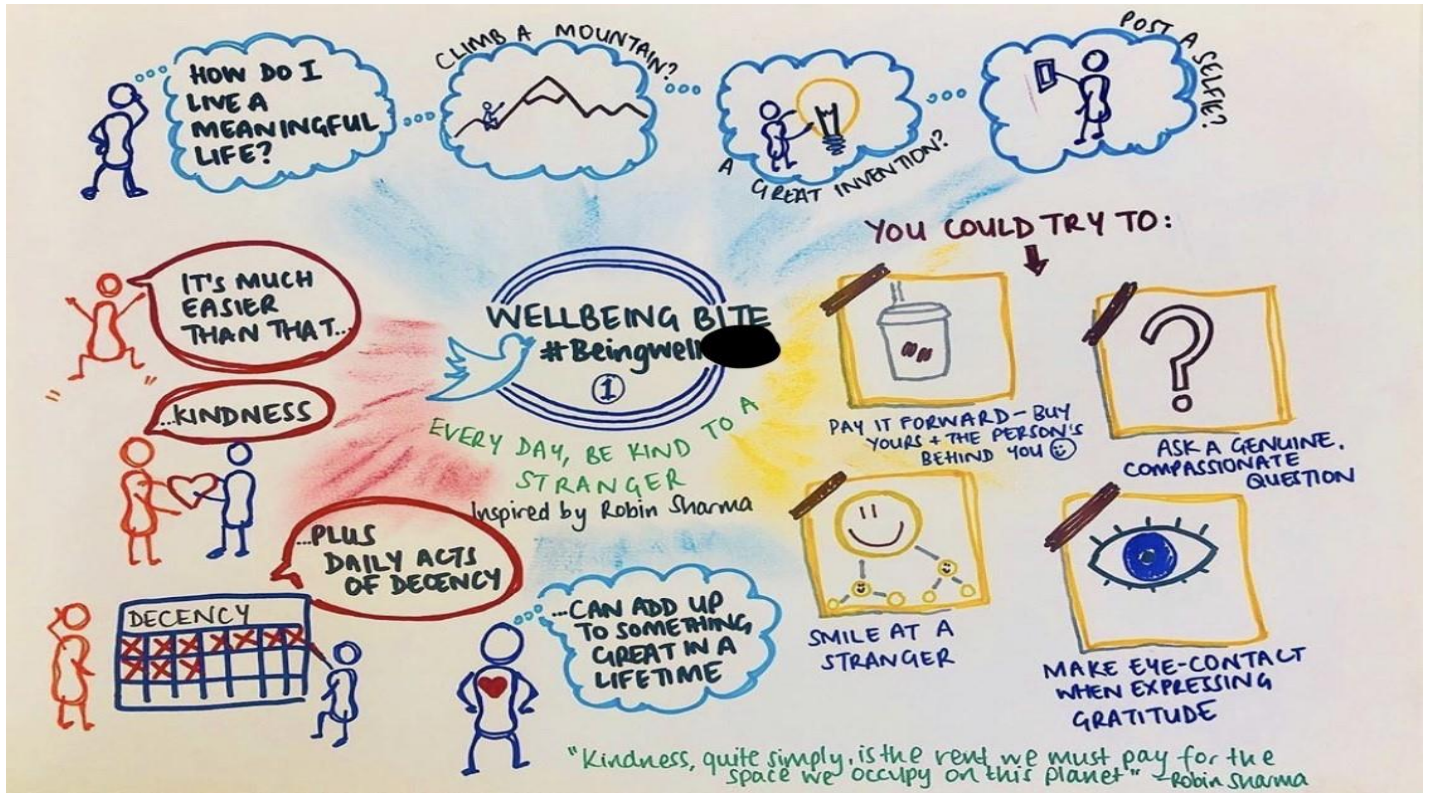 HOW DO I
LIVE A
MEANINGFUL
LIFE?
CLIMB A MOUNTAIN?
A GREAT INVENTION?
POST A SELFIE?
IT'S MUCH
EASIER
THAN THAT...
...KINDNESS
...PLUS
DAILY ACTS
OF DECENCY
DECENCY
...CAN ADD UP
TO SOMETHING
GREAT IN A
LIFETIME
WELLBEING BITE
#Beingwell
1
EVERY DAY, BE KIND TO A
STRANGER
Inspired by Robin Sharma
YOU COULD TRY TO:
PAY IT FORWARD - BUY
YOURS + THE PERSON'S
BEHIND YOU
ASK A GENUINE,
COMPASSIONATE
QUESTION
SMILE AT A
STRANGER
MAKE EYE-CONTACT
WHEN EXPRESSING
GRATITUDE
"Kindness, quite simply, is the rent we must pay for the
space we occupy on this planet" - Robin Sharma